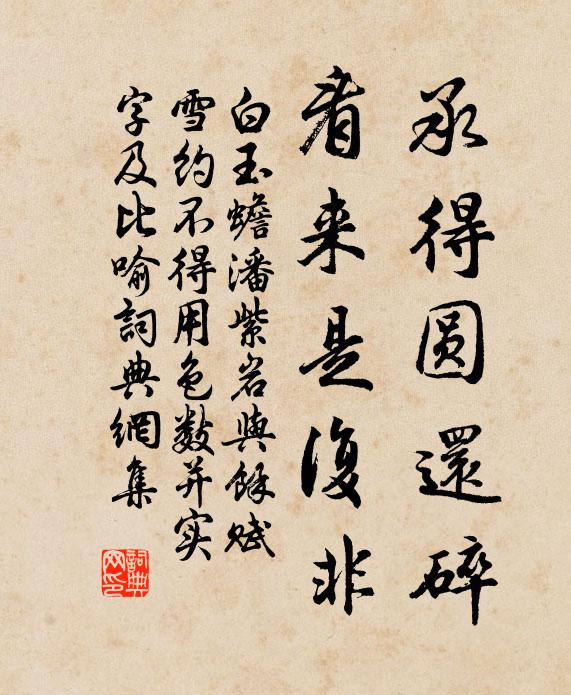 承得圆還碎
看来是復非
白玉蟾潘紫岩與餘赋
雪约不得用色數并实
字及比喻詞典網集
詞典网印